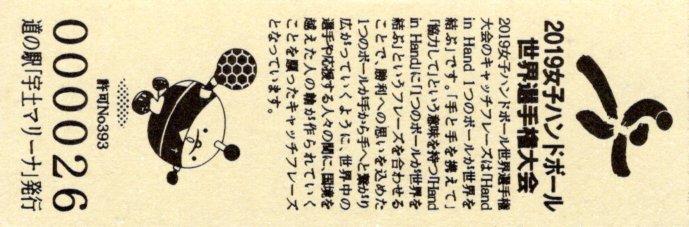 2019女子ハンドボール
世界選手権大会
2019女子ハンドボール世界選手権
大会のキャッチフレーズは「Hand
in Hand 1つのボールが世界を
結ぶ」です。「手と手を携えて」
「協力して」という意味を持つ「Hand
in Hand」に「1つのボールが世界を
結ぶ」というフレーズを合わせる
ことで、勝利への思いを込めた
1つのボールが手から手へと繋がり
広がっていくように、世界中の
選手や応援する人々の間に、国境を
越えた人の輪が作られていく
ことを願ったキャッチフレーズ
となっています。
許可No393
000026
道の駅「宇土マリーナ」発行